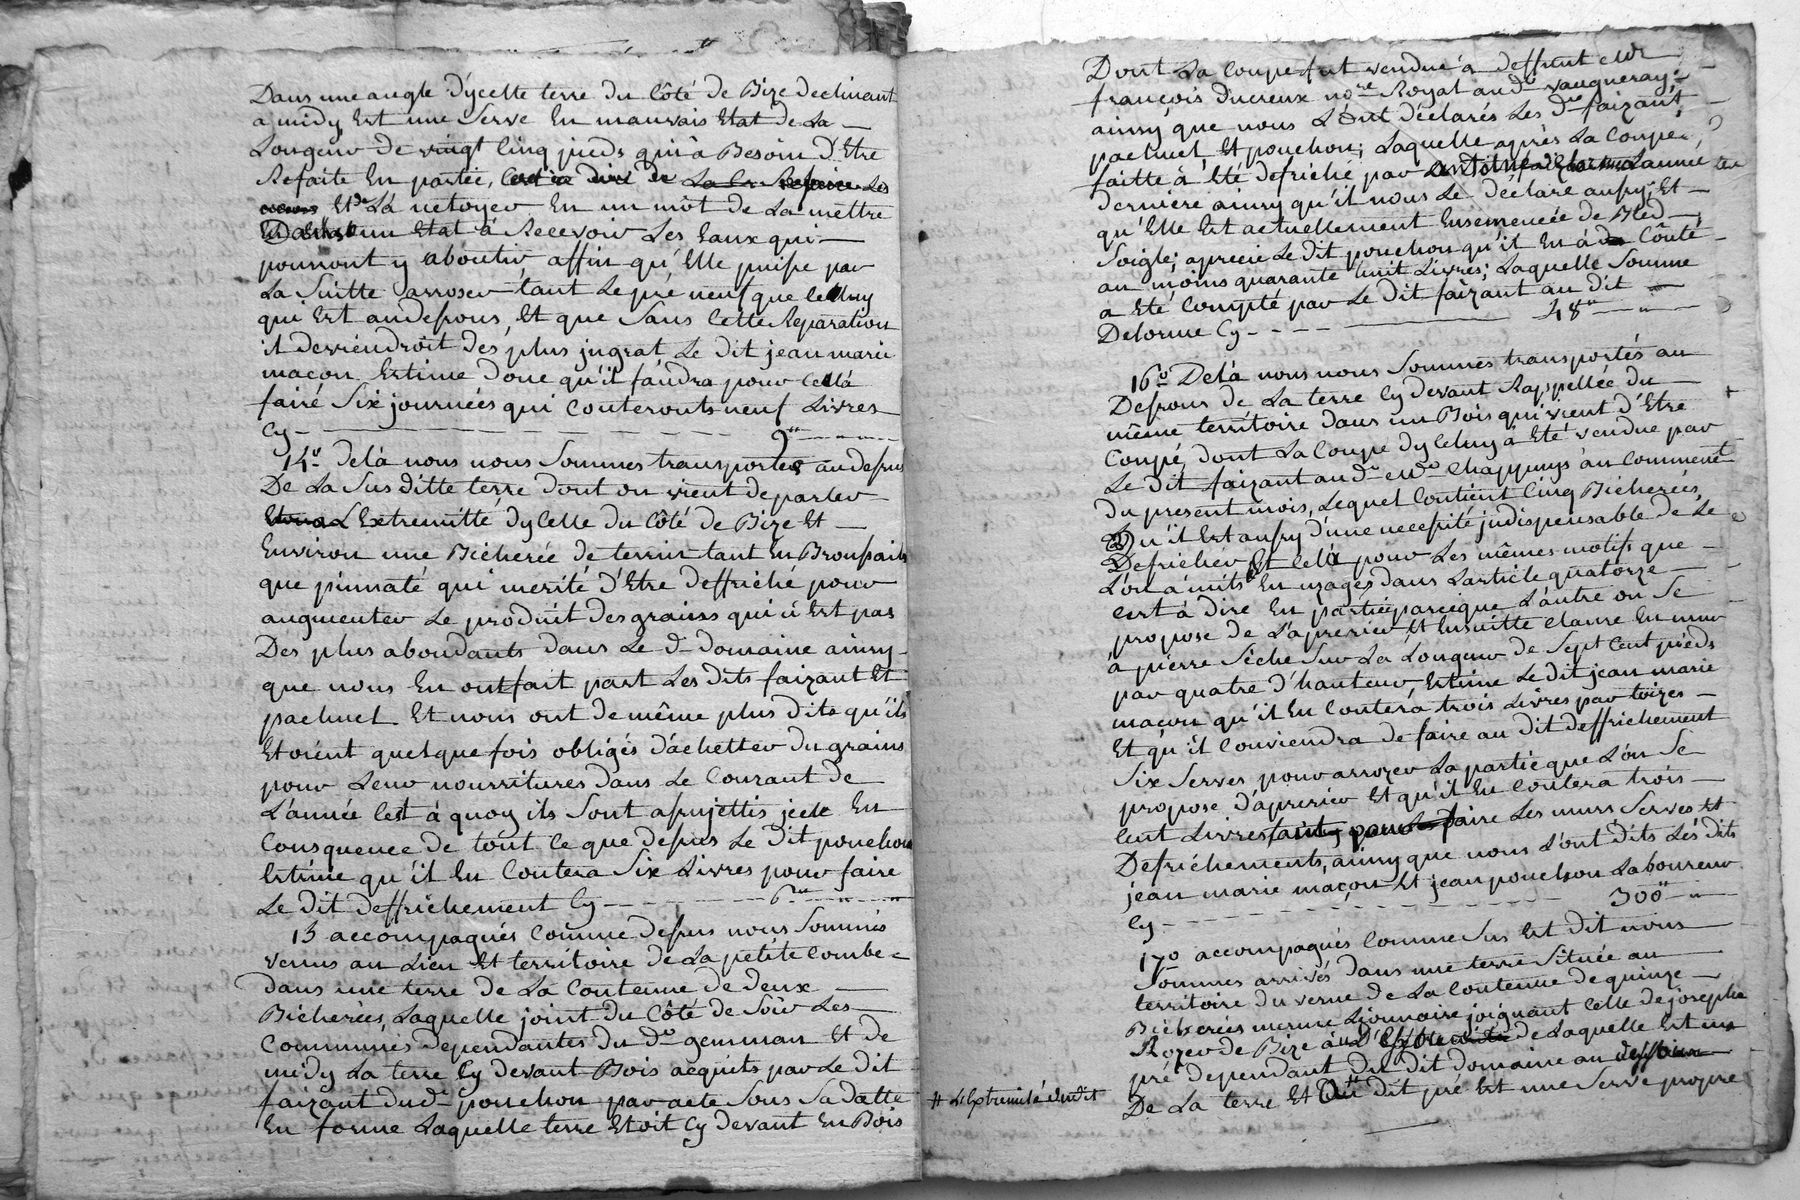 Dans une angle d'ycelle terre du Côté de Bize declinant
a midy, Est une Serve En mauvais Etat de La
Longeur de vingt Cinq pieds qui à Besoin D'Etre
Refaite En partie,
Et de La netoyer En un môt de La mettre
un Etat à Recevoir Les Eaux qui
pourront y aboutir affin qu'Elle puisse par
La Suitte arroser tant Le pré neuf que Celluy
qui Est audessous, Et que Sans Cette Reparation
il deviendroit des plus jngrat, Le dit jean marie
maçon Estime donc qu'il faudra pour Cellà
faire Six journées qui Couteronts neuf Livres
Cy 9"
14° delà nous nous Sommes transportés au dessus
De La Sus ditte terre dont on vient de parler
L'Extremitté d'ycelle du Côté de Bize Et
Environ une Bicherée de terrin tant En Broussails
que pinnaté qui merité d'Etre deffriché pour
augmenter Le produit des grains qui n'Est pas
Des plus abondants dans Le d. domaine ainsy
que nous En ont fait part Les dits faizant Et
pachuet Et nous ont de même plus dits qu'ils
Etoient quelque fois obligés d'achetter du grains
pour Leur nourritures dans Le Courant de
L'année C'est à quoy ils Sont assujettis En
Consquence de tout Ce que dessus Le Dit pouchon
Estime qu'il En Coutera Six Livres pour faire
Le dit deffrichement Cy 6"
15 accompagnés Comme dessus nous Sommes
venus au Lieu Et territoire de La petite Combe
dans une terre de La Contenue de deux
Bicherées, Laquelle joint du Côté de Soir Les
Communes dependantes du d° gemman Et de
midy La terre Cy devant Bois acquits par Le dit
faizant dud. pouchon par acte Sous Sa datte
En forme Laquelle terre Etoit Cy devant En Bois
Dont La Coupe fut vendue à deffunt Mr
françois ducreux nore Royal aud. vaugneray
ainsy que nous L'ont déclarés Les d. faizant
pachuet Et pouchon; Laquelle après La Coupe
faitte à Eté defriché par L'année
derniére ainsy qu'il nous Le déclare aussy Et
qu'Elle Est actuellement Ensemencée de Bled
Soigle; apreciée Le dit pouchon qu'il En à Coûté
au moins quarante huit Livres; Laquelle Somme
à Eté Compté par Le dit faizant au dit
Delorme Cy 48"
16° Delà nous nous Sommes transportés au
Dessous de La terre Cy devant Rappellée du
même territoire dans un Bois qui vient d'Etre
Coupé, dont La Coupe d'yCeluy à Eté vendue par
Le dit faizant au d. Chappuys au Commencet
du present mois, Lequel Contient Cinq Bicherées,
Qu'il Est aussy d'une necessité jndispensable de Le
Defricher Et Cellà pour Les mêmes motifs que
L'on a mits En uzages dans L'article quatorze
c'est à dire En partie parceque L'autre on Se
propose de L'aprerier Et Ensuitte Claure En mur
à pierre Séche Sur La Longeur de Sept Cent pieds
par quatre d'hauteur, Estime Le dit jean marie
maçon qu'il En Coutera trois Livres par toizes
Et qu'il Conviendra de faire au dit deffrichement
Six Serves pour arrozer La partie que L'on Se
propose d'aprerier Et qu'il En Coutera trois
Cent Livres faire Les murs Serves Et
Defrichements, ainsy que nous L'ont dits Les dits
jean marie maçon Et jean pouchon Laboureur
Cy 300"
17° accompagnés Comme Sus Est dit nous
Sommes arrivés dans une terre Située au
territoire du verne de La Contenue de quinze
Bicherées mesure Lionnaire joignant Celle de josephe
Rozer de Bize de Laquelle Est un
pré dependant du dit domaine au
De La terre Et Au dit pré Est une Serve propre
# L'Extremité dudit